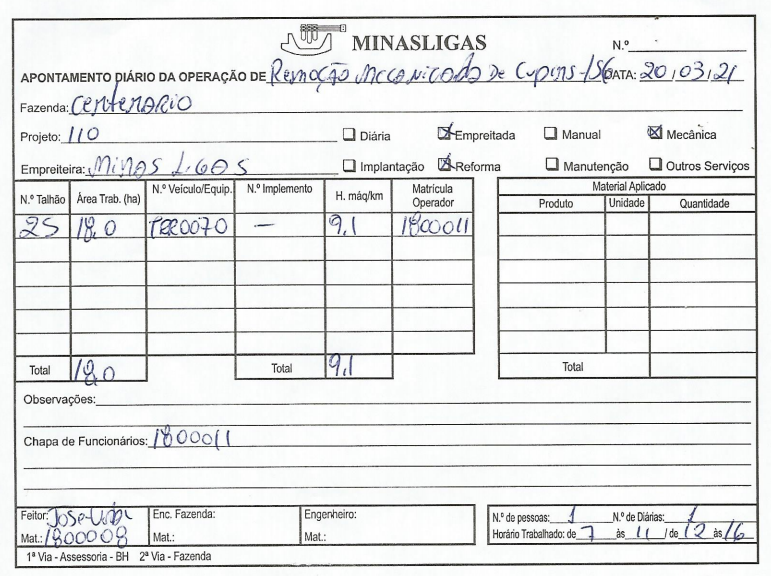 MINASLIGAS N.º
APONTAMENTO DIÁRIO DA OPERAÇÃO DE Remoção Mecanicada De Cupins-156 DATA: 20/03/21
Fazenda: CENTENARIO
Projeto: 110 Diária Empreitada Manual Mecânica
Empreiteira: MINAS LIGAS Implantação Reforma Manutenção Outros Serviços
N.º Talhão Área Trab. (ha) N.º Veículo/Equip. N.º Implemento H. máq/km Matrícula Operador Material Aplicado
Produto Unidade Quantidade
25 18,0 TRR0070 — 9,1 1800011
Total 18,0 Total 9,1 Total
Observações:
Chapa de Funcionários: 1800011
Feitor: José Enc. Fazenda: Engenheiro: N.º de pessoas: 1 N.º de Diárias: 1
Mat.: 1800008 Mat.: Mat.: Horário Trabalhado: de 7 às 11 / de 12 às 16
1ª Via - Assessoria - BH 2ª Via - Fazenda